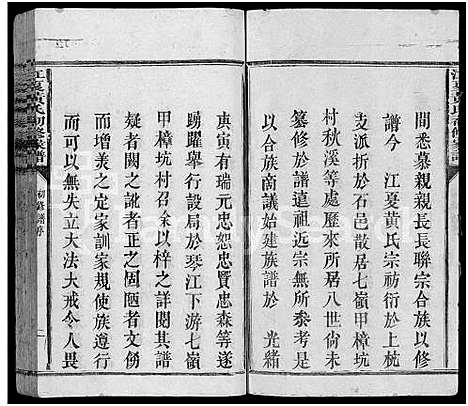 江夏黃氏初修家譜
間悉慕親親長長聯宗合族以修
譜今　江夏黃氏宗祊衍於上杭
支派折於石邑散居七嶺甲樟坑
村秋溪等處歷來所居八世尙未
纂修於譜這祖近宗無所繫考是
以合族商議始建族譜於　光緒
庚寅有瑞元忠恕忠賢忠森等遂
踴躍舉行設局於琴江下游七嶺
甲樟坑村召余以梓之詳閱其譜
疑者闕之訛者正之固陋者文傍
而增美之定家訓家規使族遵行
而可以無失立大法大戒令人畏
江夏黃氏初修家譜
初修譜序